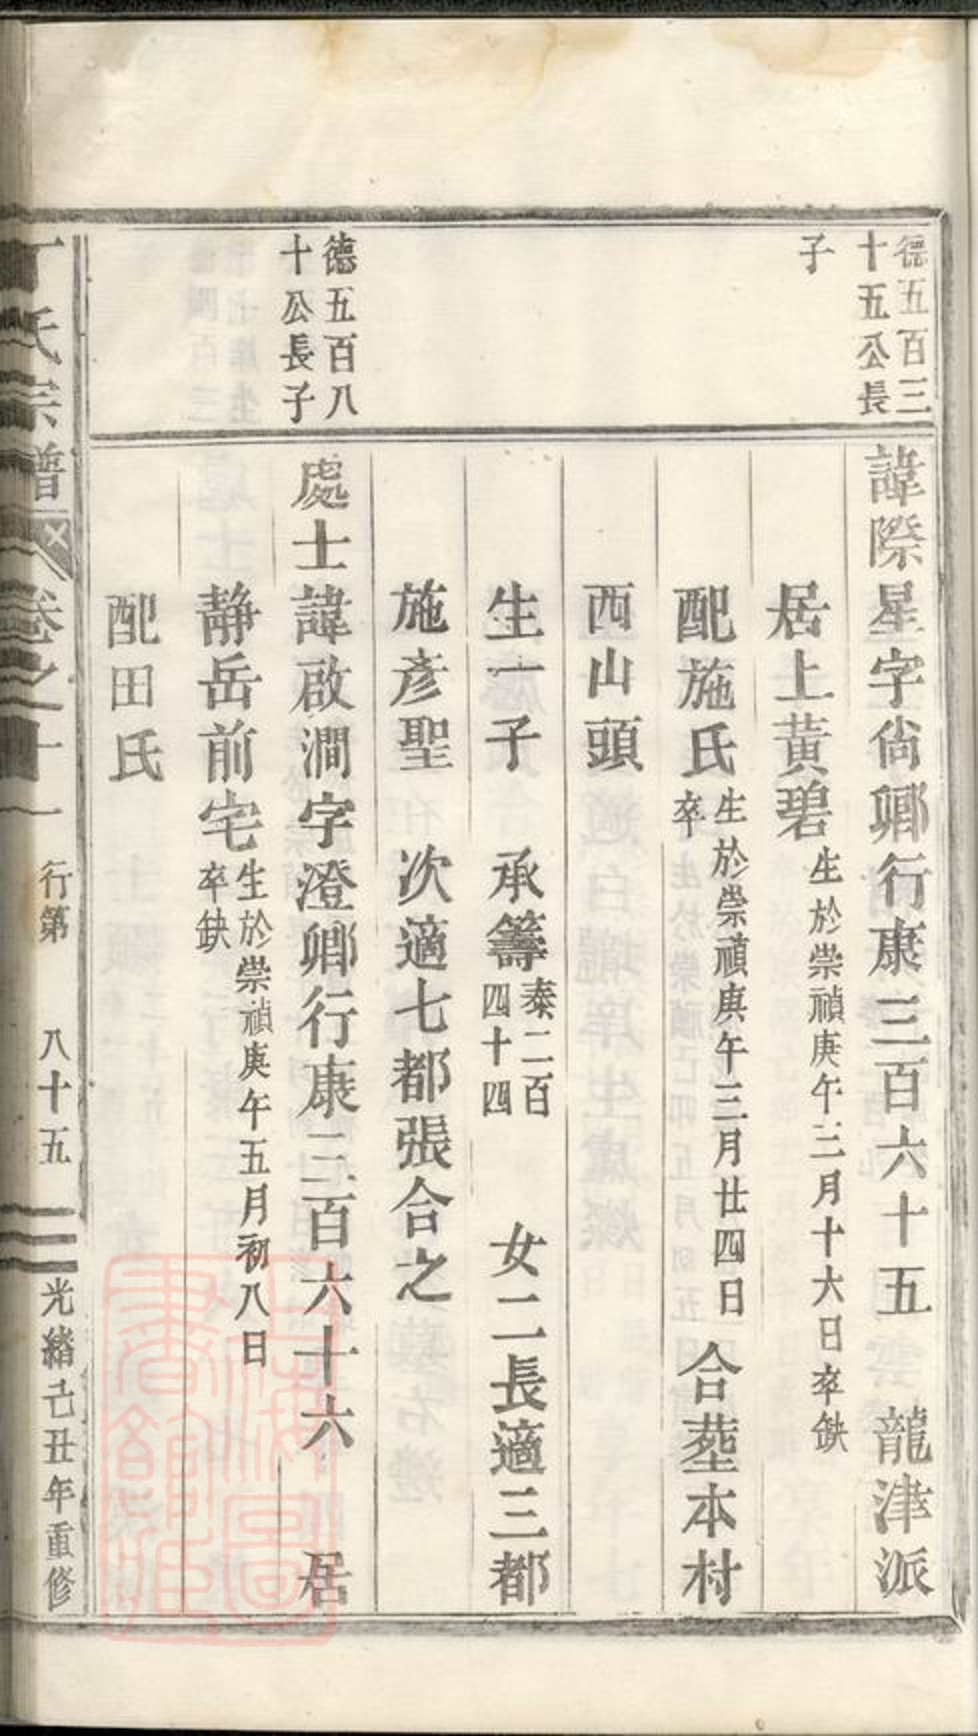 德五百三
十五公長
子
諱際星字尙卿行康三百六十五 龍津派
居上黃碧 生於崇禎庚午三月十六日卒缺
配施氏 生於崇禎庚午三月廿四日 合塟本村
卒
西山頭
生一子 承籌 泰二百 女二長適三都
四十四
施彥聖 次適七都張合之
德五百八
十公長子
處士諱啟澗字澄卿行康三百六十六 居
静岳前宅 生於崇禎庚午五月初八日
卒缺
配田氏
丁氏宗譜 卷之十一 行第 八十五 光緒己丑年重修
上海圖書館藏